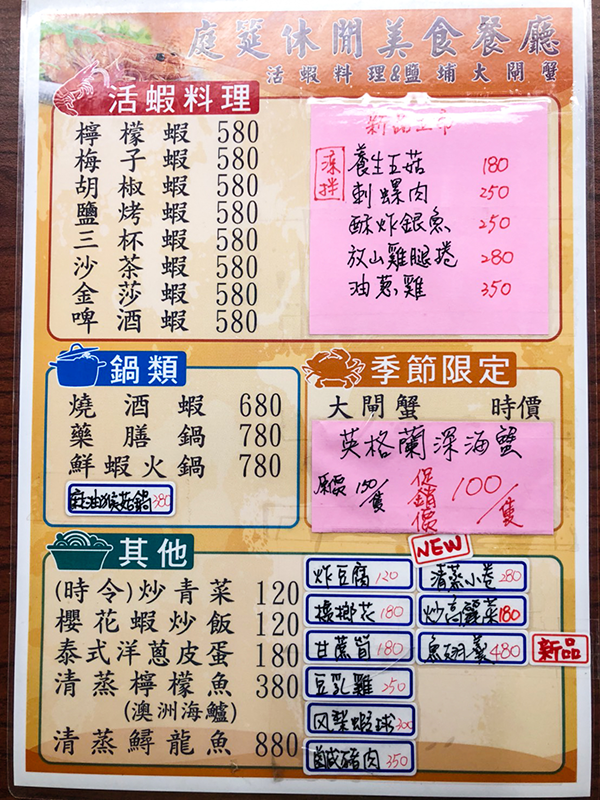 庭筵休閒美食餐廳
活蝦料理&鹽埔大閘蟹
活蝦料理
檸檬蝦 580
梅子蝦 580
胡椒蝦 580
鹽烤蝦 580
三杯蝦 580
沙茶蝦 580
金莎蝦 580
啤酒蝦 580
新品上市
涼拌
養生五菇 180
刺螺肉 250
酥炸銀魚 250
放山雞腿捲 280
油蔥雞 350
鍋類
燒酒蝦 680
藥膳鍋 780
鮮蝦火鍋 780
麻油猴菇鍋 380
季節限定
大閘蟹 時價
英格蘭深海蟹
原價150/隻
促銷價 100/隻
其他
(時令)炒青菜 120
櫻花蝦炒飯 120
泰式洋蔥皮蛋 180
清蒸檸檬魚 380
(澳洲海鱸)
清蒸鱘龍魚 880
炸豆腐 120
檳榔花 180
甘蔗筍 180
豆乳雞 250
風梨蝦球 300
鹹豬肉 350
NEW
清蒸小卷 280
炒高麗菜 180
魚翅羹 480
新品